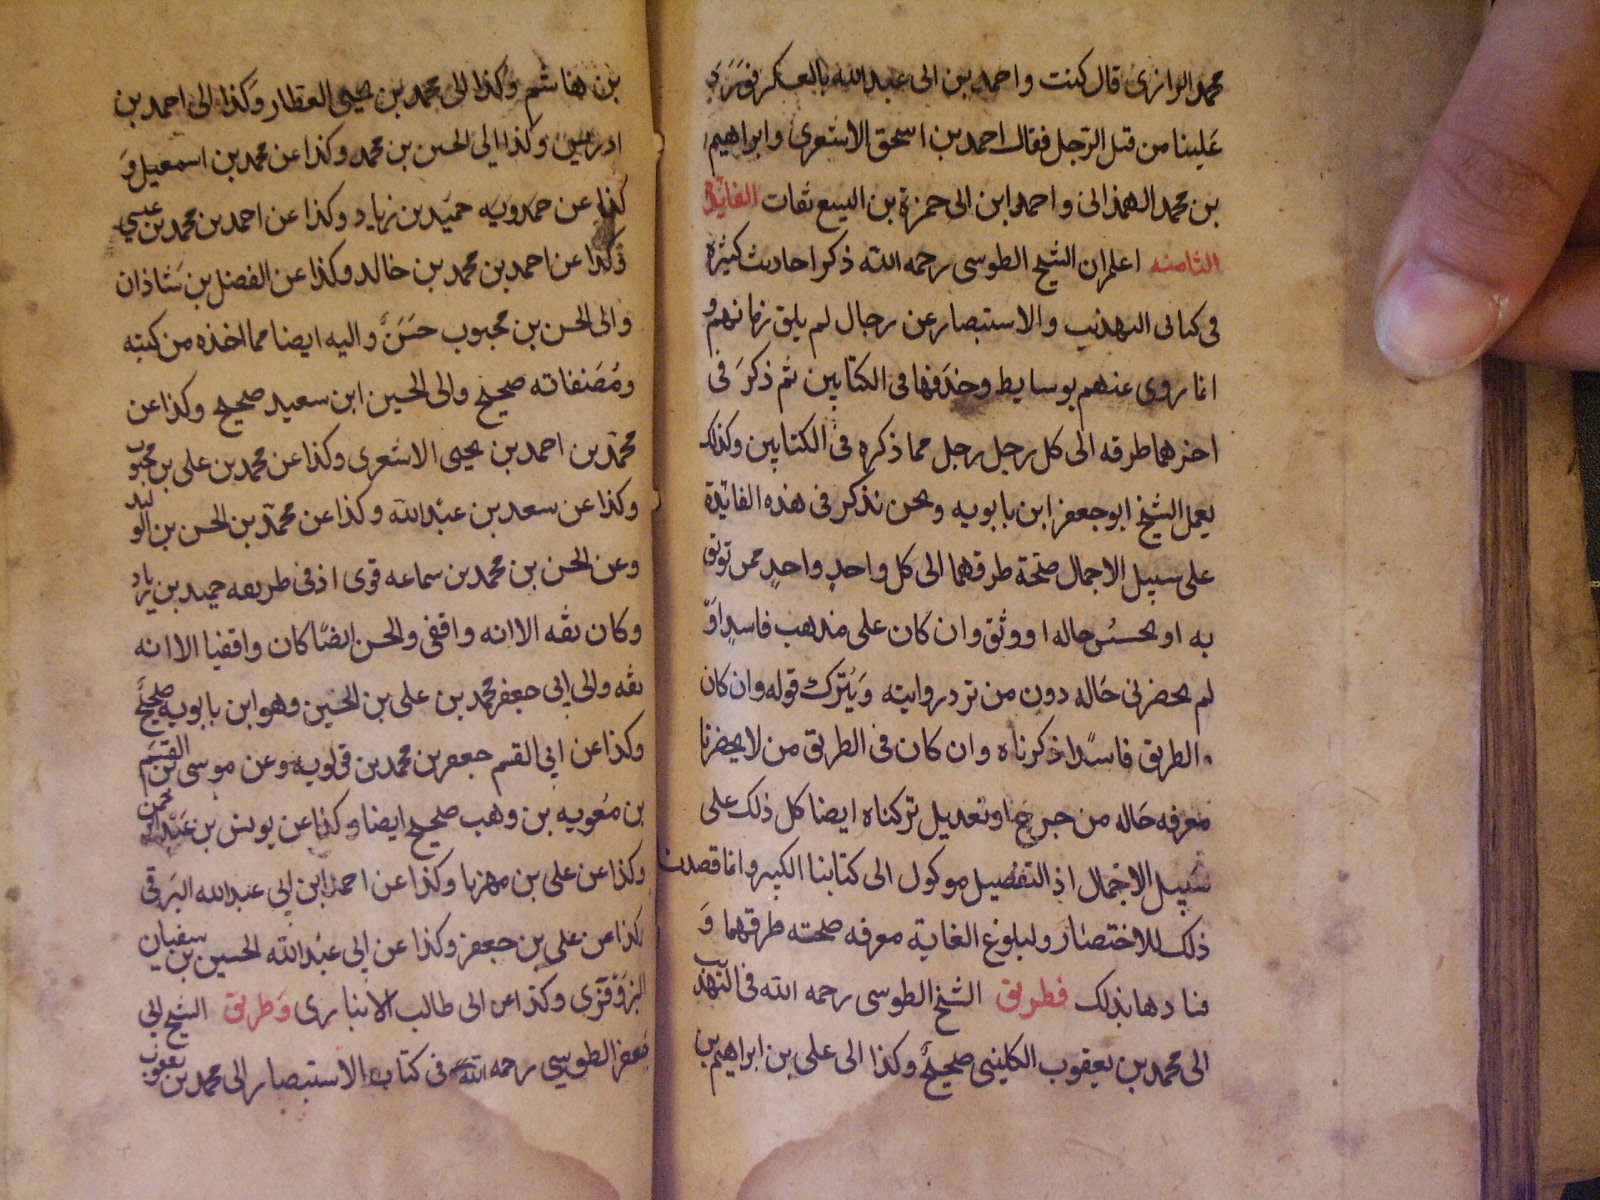 محمد الرازى قال كنت و احمد بن ابى عبد الله بالعسكر فورد
علينا من قبل الرجل فقال احمد بن اسحق الاشعرى و ابراهيم
بن محمد الهمذانى و احمد ابن ابى حمزة بن اليسع ثقات الفائدة
الثامنه اعلم ان الشيخ الطوسى رحمه الله ذكر احاديث كثيرة
فى كتابى التهذيب والاستبصار عن رجال لم يلق زمانهم و
انما روى عنهم بوسايط وحذفها فى الكتابين ثم ذكر فى
اخرهما طرقه الى كل رجل رجل مما ذكره فى الكتابين وكذلك
يعمل الشيخ ابو جعفر ابن بابويه ونحن نذكر فى هذه الفائدة
على سبيل الاجمال صحة طرقهما الى كل واحد واحد ممن توثق
به او بحسن حاله او وثق وان كان على مذهب فاسد او
لم يحضرنى حاله دون من ترد روايته ويترك قوله وان كان
الطريق فاسدا ذكرناه وان كان فى الطريق من لا يحضرنا
معرفه حاله من جرح او تعديل تركناه ايضا كل ذلك على
سبيل الاجمال اذ التفصيل موكول الى كتابنا الكبير و انما قصدنا
ذلك للاختصار ولبلوغ الغاية معرفه صحته طرقهما و
فسادها بذلك فطريق الشيخ الطوسى رحمه الله فى التهذيب
الى محمد بن يعقوب الكلينى صحيح وكذا الى على بن ابراهيم بن
بن هاشم وكذا الى محمد بن يحيى العطار وكذا الى احمد بن
ادريس وكذا الى الحسين بن محمد وكذا عن محمد بن اسمعيل و
كذا عن حمدويه حميد بن زياد وكذا عن احمد بن محمد بن عيسى
وكذا عن احمد بن محمد بن خالد وكذا عن الفضل بن شاذان
والى الحسن بن محبوب حسن و اليه ايضا مما اخذه من كتبه
ومصنفاته صحيح والى الحسين ابن سعيد صحيح وكذا عن
محمد بن احمد بن يحيى الاشعرى وكذا عن محمد بن على بن محبوب
وكذا عن سعد بن عبد الله وكذا عن محمد بن الحسن بن الوليد
وعن الحسن بن محمد بن سماعه قوى اذ فى طريقه حميد بن زياد
وكان ثقه الا انه واقفى والحسن ايضا كان واقفيا الا انه
ثقه والى ابى جعفر محمد بن على بن الحسين وهو ابن بابويه صحيح
وكذا عن ابى القسم جعفر بن محمد بن قولويه وعن موسى بن القسم
بن معويه بن وهب صحيح ايضا وكذا عن يونس بن عبد الرحمن
وكذا عن على بن مهزيار وكذا عن احمد ابن ابى عبد الله البرقى
كذا عن على بن جعفر وكذا عن ابى عبد الله الحسين بن سفيان
البزوفرى وكذا عن ابى طالب الانبارى وطريق الشيخ ابى
جعفر الطوسى رحمه الله فى كتاب الاستبصار الى محمد بن يعقوب